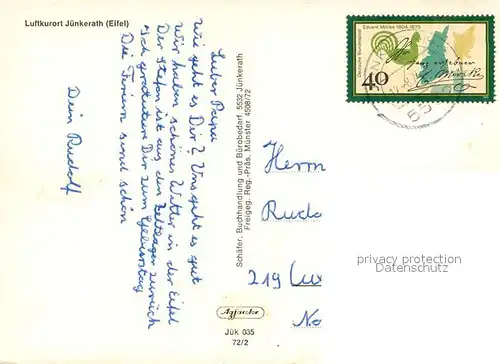 Luftkurort Jünkerath (Eifel)
Lieber Papa
Wie geht es Dir? Uns geht es gut
Wir haben schönes Wetter in der Eifel
Der Stefan ist aus dem Zeltlager zurück
Ich gratuliere Dir zum Geburtstag
Die Ferien sind schön
Dein Rudolf
Schäfer, Buchhandlung und Bürobedarf, 5532 Jünkerath
Freigeg. Reg.-Präs. Münster 4508/72
Jük 035
72/2
Deutsche Bundespost
Eduard Mörike 1804-1875
40
Herrn
219
privacy protection
Datenschutz